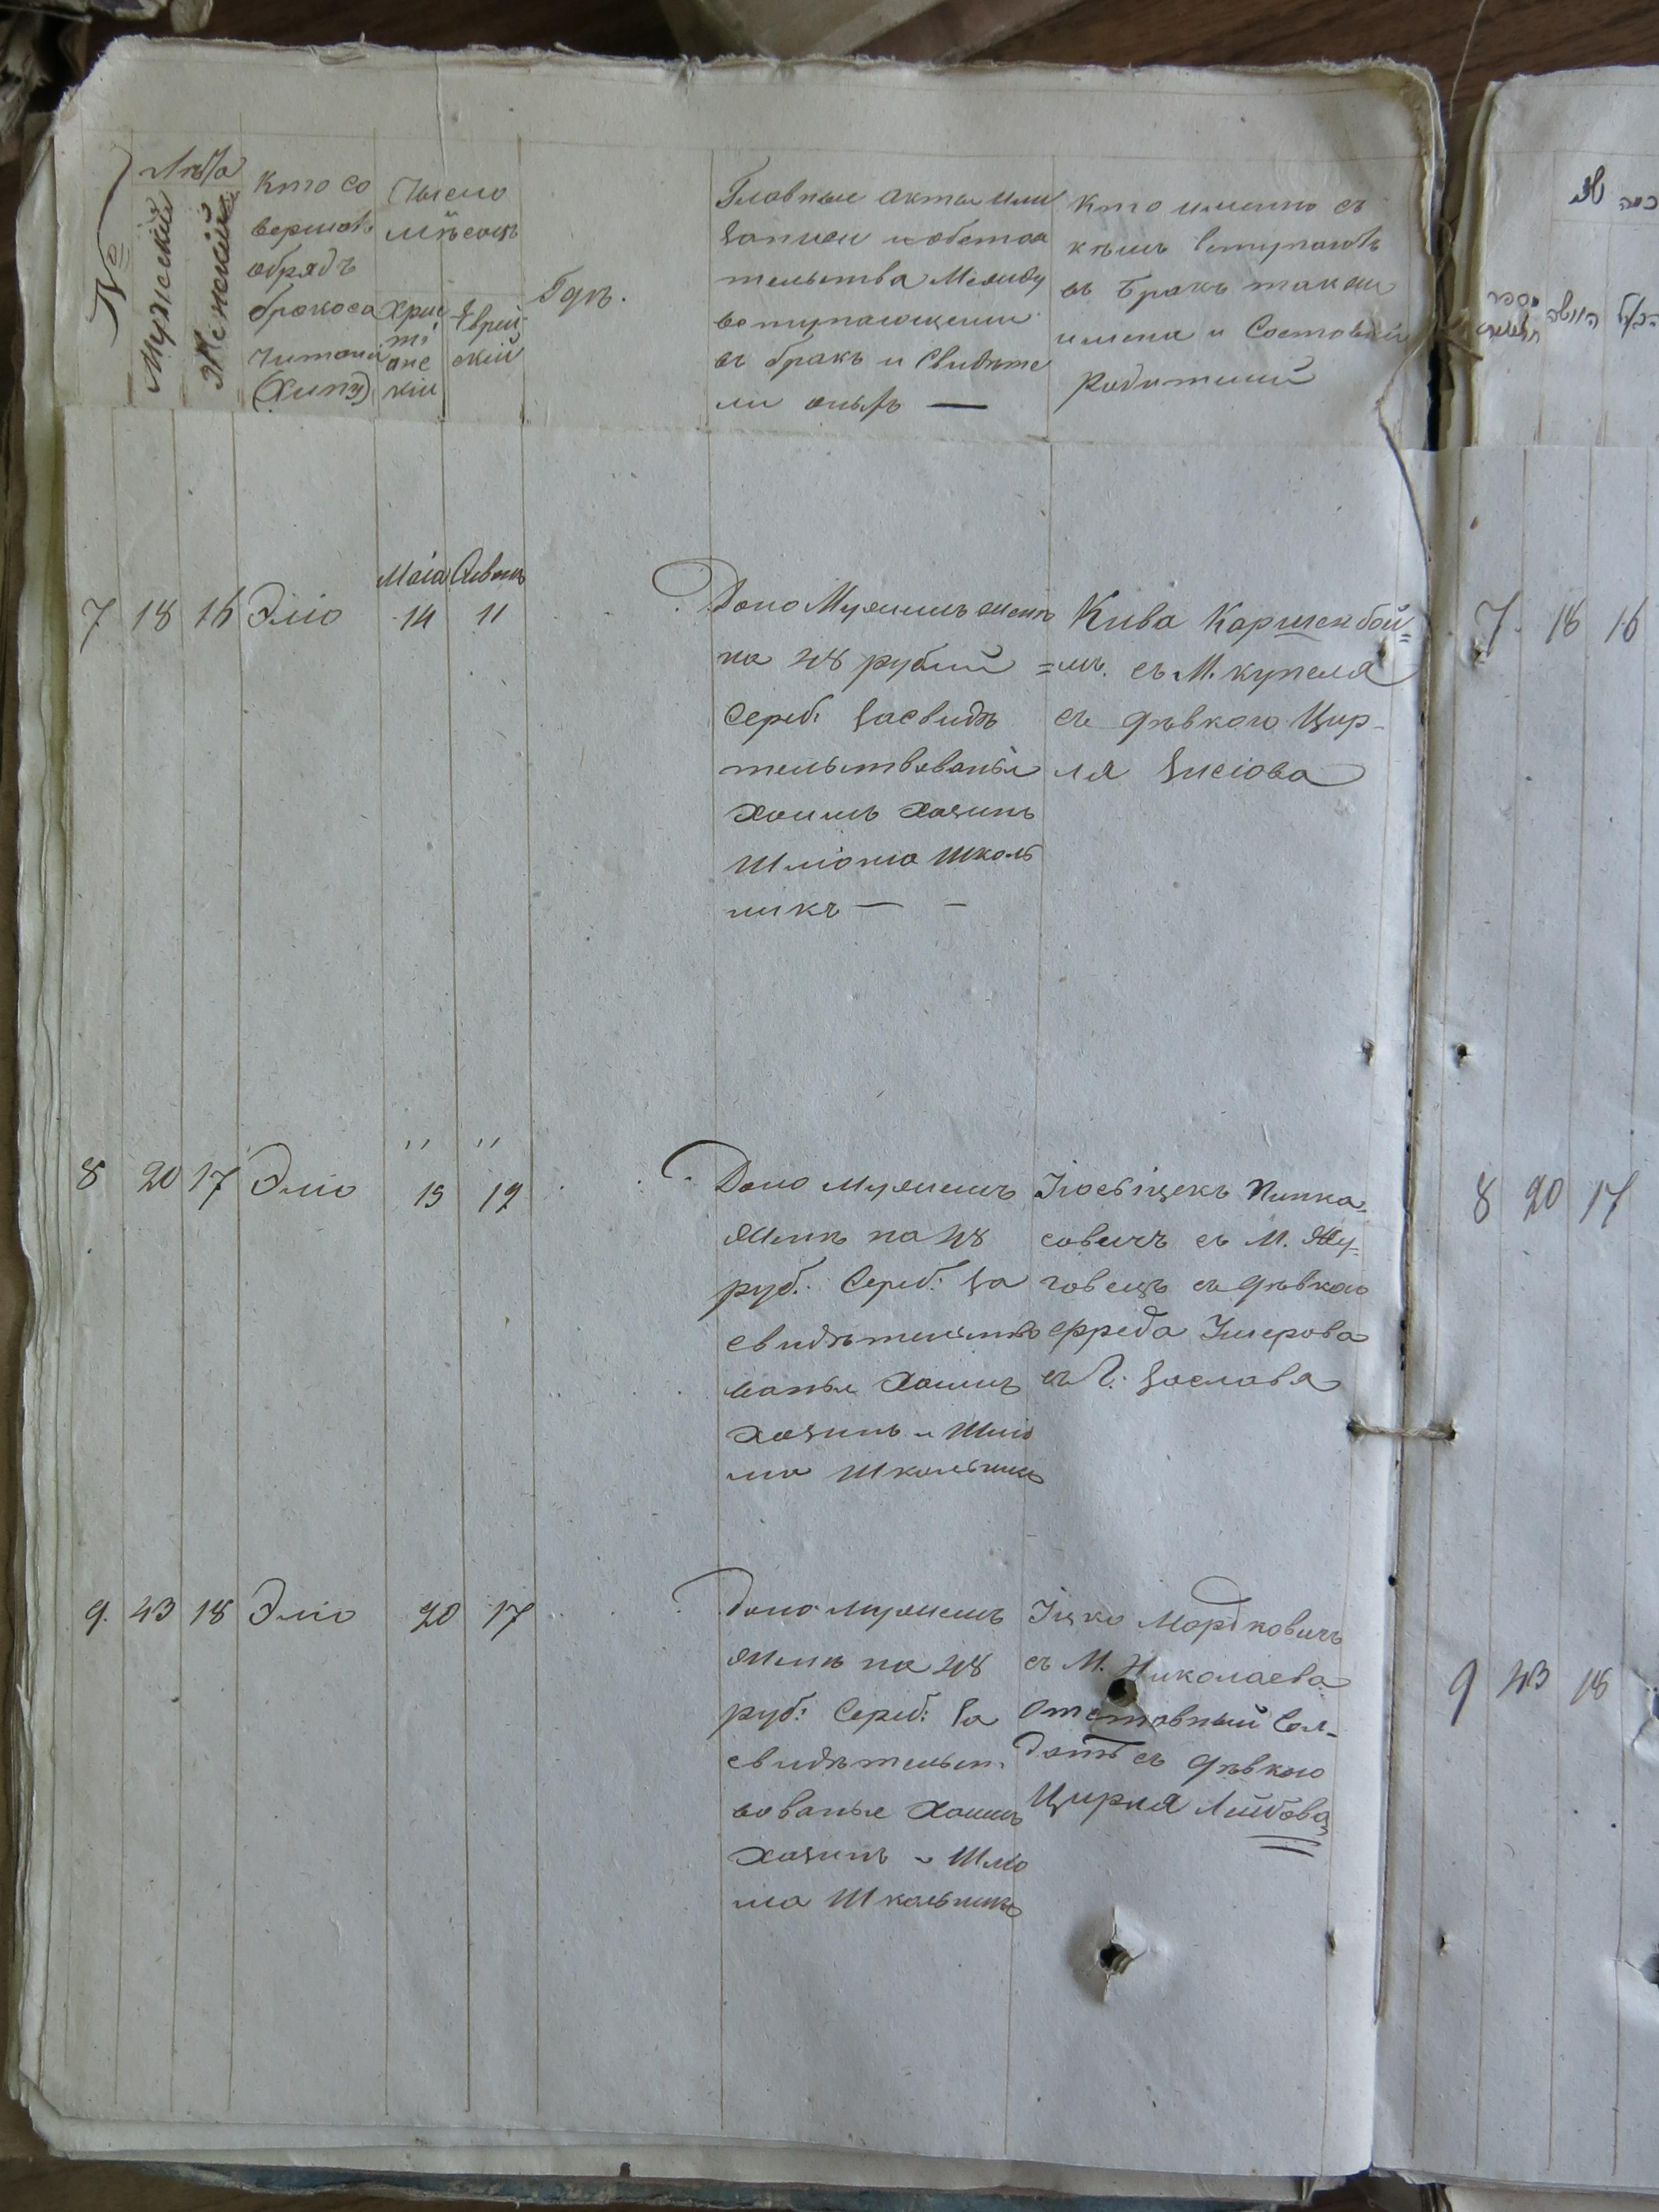 №
Лѣта
Мужескій
Женскій
Кто со
вершалъ
обрядъ
бракоса
читанія
(Хипэ)
Число
мѣсяцъ
Хрис
ті
анс
кій
Еврей
скій
Гдѣ.
Главные акты или
записи и обстоя
тельства Между
вступающими
въ бракъ и Свидѣте
ли оныхъ —
Кто именно съ
кѣмъ вступаютъ
въ Бракъ также
имена и Состояній
Родителей
7 18 16 Эліо
Маіа Сивонъ
14 11
Дано Мужемъ женѣ
на 48 рублей
Сереб: засвидѣ
тельствованы
Хаимъ Хазинъ
Шліома Школь
никъ — —
Кива Каршенбой=
=мъ. съ М. Купеля
съ дѣвкою Цир-
ля Зисіова
8 20 17 Эліо
" "
15 12
Дано мужемъ
Женѣ на 48
руб: Сереб: за
свидѣтельство
ваны Хаимъ
Хазинъ и Шліо
ма Школьникъ
Іосьіцекъ Пинка-
совичъ съ М.
съ дѣвкою
Фрейда
съ Г. Заслава
9. 43 18 Эліо 20 17
Дано мужемъ
Женѣ на 48
руб: Сереб: За
свидѣтельст
вованье Хаимъ
Хазинъ и Шліо
ма Школьникъ
Іцко Мордковичъ
съ М. Николаева
Отставный Сол-
датъ съ дѣвкою
Цирля Лейбова
7. 18 16
8 20 17
9 43 18